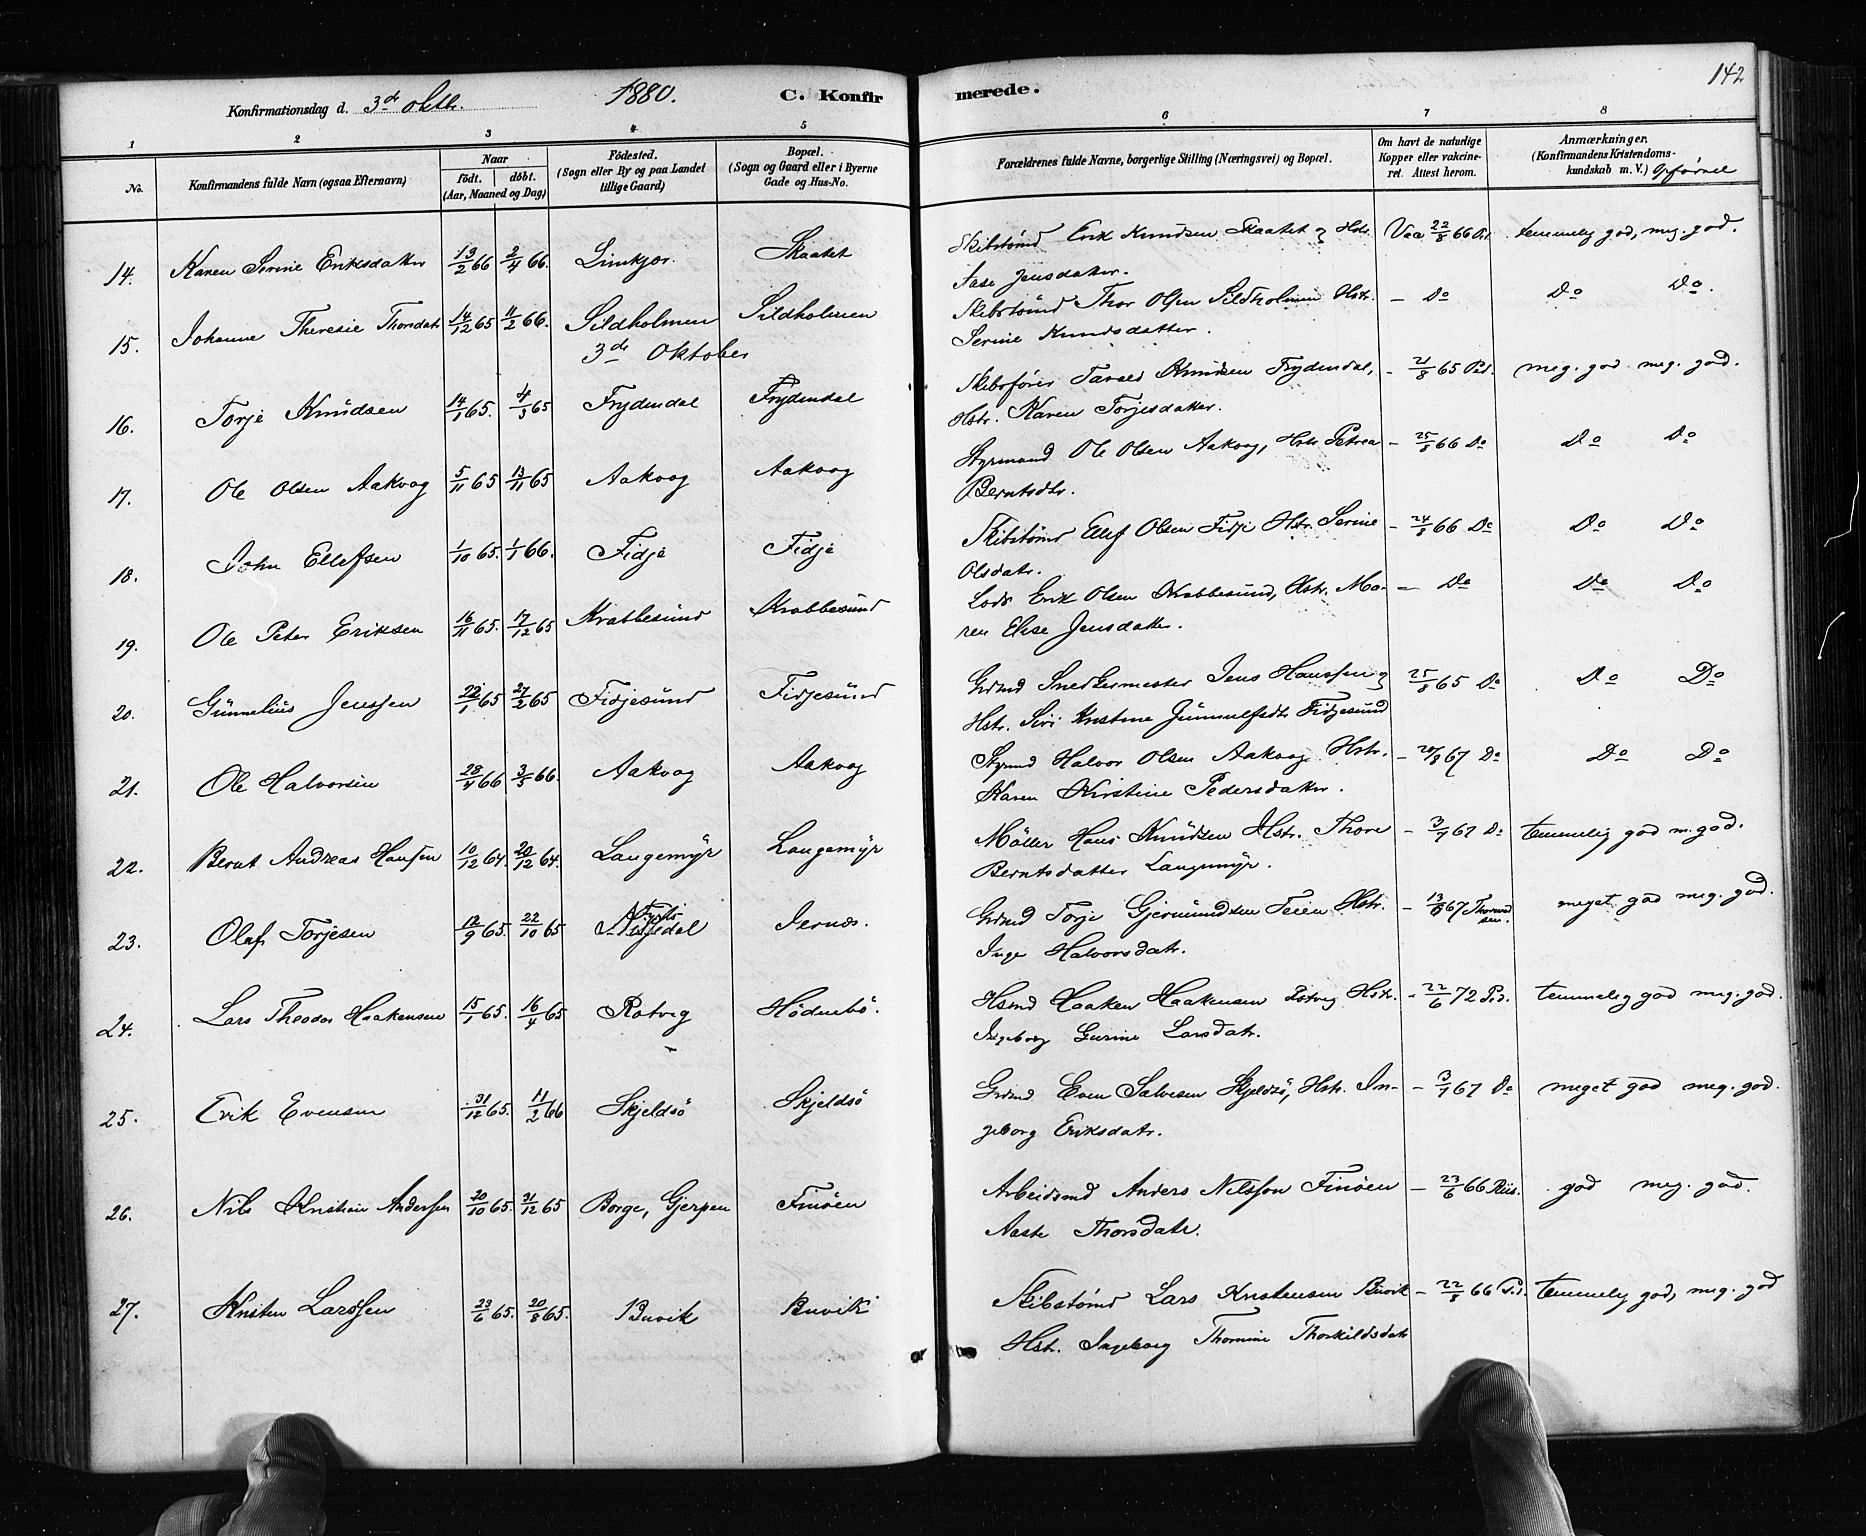 142
Konfirmationsdag d. 3die oktbr. 1880. C. Konfirmerede.
1 2 3 4 5 6 7 8
No. Konfirmandens fulde Navn (ogsaa Efternavn) Naar født. døbt. (Aar, Maaned og Dag) Fødested. (Sogn eller By og paa Landet tillige Gaard) Bopæl. (Sogn og Gaard eller i Byerne Gade og Hus-No.) Forældrenes fulde Navne, borgerlige Stilling (Næringsvei) og Bopæl. Om havt de naturlige Kopper eller vakcineret. Attest herom. Anmærkninger, (Konfirmandens Kristendomskundskab m. V.) Opførsel
14. Karen Serine Eriksdatter 13/2 66 2/4 66. Limkjær. Skaatet Skibstømd Erik Knudsen Skaatet og Hstr. Vac 22/8 66 Ped temmelig god, meg. god.
Aase Jensdatter.
15. Johanne Theresie Thorsdatr 14/12 65 11/2 66. Sildholmen Sildholmen Skibstømd Thor Olsen Sildholmen Hstr. — Do Do Do.
Serine Knudsdatter.
3die Oktober
16. Torje Knudsen 14/1 65. 4/3 65 Frydendal Frydendal Skibsfører Tarald Knudsen Frydendal, - 21/8 65 Ped. meg. god meg. god.
Hstr. Karen Torjesdatter.
17. Ole Olsen Aakvag 5/11 65 13/11 65 Aakvag Aakvag Styrmand Ole Olsen Aakvag, Hstr Petrea - 25/8 66 Do Do Do
Berntsdtr.
18. John Ellefsen 1/10 65. 1/1 66. Fidje Fidje Skibstømd Ellef Olsen Fidje Hstr. Serine - 24/8 66 Do Do Do
Olsdatr.
19. Ole Peter Eriksen 16/11 65. 17/12 65 Krabbesund Krabbesund Lods Erik Olsen Krabbesund, Hstr. Ma- — Do Do Do
ren Elise Jensdatter.
20. Gunnelius Jenssen 22/1 65 27/2 65 Fidjesund Fidjesund Grdmd Snedkermester Jens Hanssen og 25/8 65 Do Do Do
Hstr. Siri Kristine Gunnulfsdtr Fidjesund
21. Ole Halvorsen 28/4 66 3/5 66. Aakvag Aakvag Styrmd Halvor Olsen Aakvag Hstr. - 20/8 67 Do Do Do
Karen Kirstine Pedersdatter.
22. Bernt Andreas Hansen 10/12 64. 20/12 64. Langemyr Langemyr Møller Hans Knudsen Hstr. Thore - 3/7 67 Do temmelig god m. god.
Berntsdatter Langemyr.
23. Olaf Torjesen 12/9 65. 22/10 65 Jernæs. Grdmd Torje Gjermundsen Feien Hstr. - 13/6 67 meget god meg. god.
Inger Halvorsdatr.
24. Lars Theodor Haakensen 15/1 65. 16/4 65 Rotvig Hødnebø. Hsmd Haaken Haakensen Rotvig Hstr. - 22/6 72 Ped. temmelig god meg. god.
Ingeborg Gurine Larsdatr.
25. Erik Evensen 31/12 65. 11/2 66 Skjeldsø Skjeldsø Grdmd Even Salvesen Skjeldsø, Hstr. In- - 3/7 67 Do meget god meg. god.
geborg Eriksdatr.
26. Nils Kristian Anderssen 20/10 65. 31/12 65 Borge, Gjerpen Finøen Arbeidsmd Anders Nilsson Finøen — 23/6 66 Riis. god meg. god.
Aaste Thorsdatr.
27. Kristen Larssen 23/6 65. 20/8 65. Buvik Buvik Skibstømd Lars Kristensen Buvik — 22/8 66 Ped. temmelig god, meg. god
Hstr. Ingeborg Thomine Thorkildsdatr